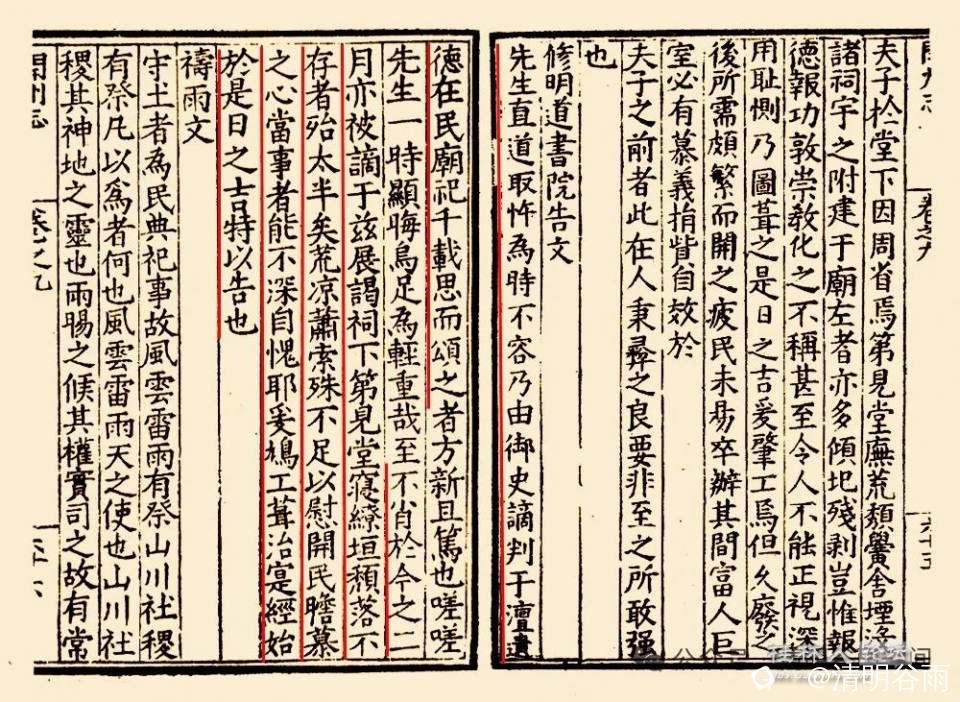 夫子於堂下因周省焉第見堂廡荒頹黌舍堙淤
諸祠宇之附建于廟左者亦多傾圯殘剥豈惟報
德報功敦崇教化之不稱甚至令人不能正視深
用恥惻乃圖葺之是日之吉爰肇工焉但久廢之
後所需頗繁而開之疲民未易卒辦其間富人巨
室必有慕義捐貲自效於
夫子之前者此在人秉彝之良要非至之所敢强
也
修明道書院告文
先生直道取忤為時不容乃由御史謫判于澶遺
德在民廟祀千載思而頌之者方新且篤也嗟嗟
先生一時顯晦烏足為輕重哉至不肖於今之二
月亦被謫于兹展謁祠下第見堂寢繚垣頹落不
存者殆太半矣荒凉蕭索殊不足以慰開民瞻慕
之心當事者能不深自愧耶爰鳩工葺治寔經始
於是日之吉特以告也
禱雨文
守土者為民典祀事故風雲雷雨有祭山川社稷
有祭凡以為者何也風雲雷雨天之使也山川社
稷其神地之靈也雨暘之候其權實司之故有常
開州志
卷之九
六十六
公众号
桂林人论坛
@清明谷雨